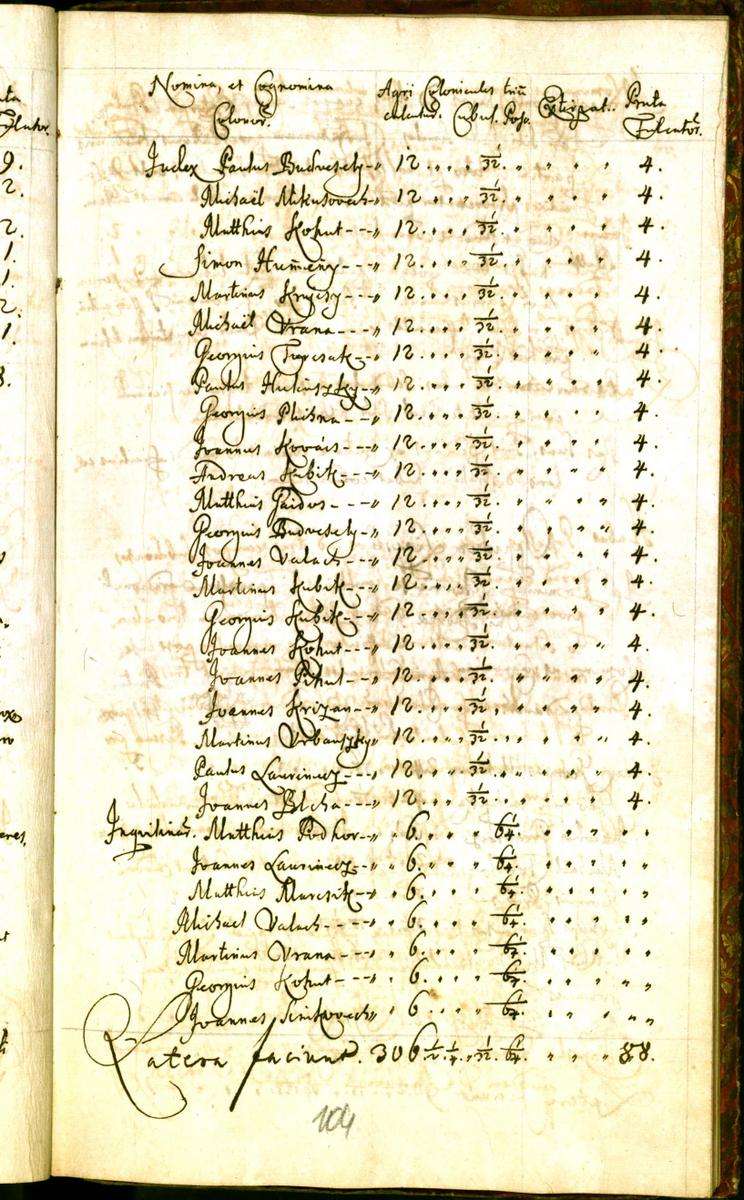 Nomina, et Cognomina Agri Coloniculis Extirpat. Prata
Colonor. Cubul. Poss. Falcator.
Judex Paulus Budvesely 12 1/32 4.
Michaël Mikusovech 12 1/32 4.
Matthias Kohut 12 1/32 4.
Simon Humeny 12 1/32 4.
Martinus 12 1/32 4.
Michaël Vrana 12 1/32 4.
Georgius 12 1/32 4.
Paulus 12 1/32 4.
Georgius Plichna 12 1/32 4.
Joannes Kovács 12 1/32 4.
Andreas Kubik 12 1/32 4.
Matthias Gaidos 12 1/32 4.
Georgius Budvesely 12 1/32 4.
Joannes Valach 12 1/32 4.
Martinus Kubik 12 1/32 4.
Georgius Kubik 12 1/32 4.
Joannes Kohut 12 1/32 4.
Joannes Pihut 12 1/32 4.
Joannes Krizan 12 1/32 4.
Martinus Urbanszky 12 1/32 4.
Paulus Laurinecz 12 1/32 4.
Joannes Blcha 12 1/32 4.
Inquilinus. Matthias Podhor 6. 1/64
Joannes Laurinecz 6. 1/64
Matthias Marcsik 6. 1/64
Michael Valach 6. 1/64
Martinus Vrana 6. 1/64
Georgius Kohut 6. 1/64
Joannes 6 1/64
Latera faciunt. 306 1/2 1/4 1/32 1/64 88.
104